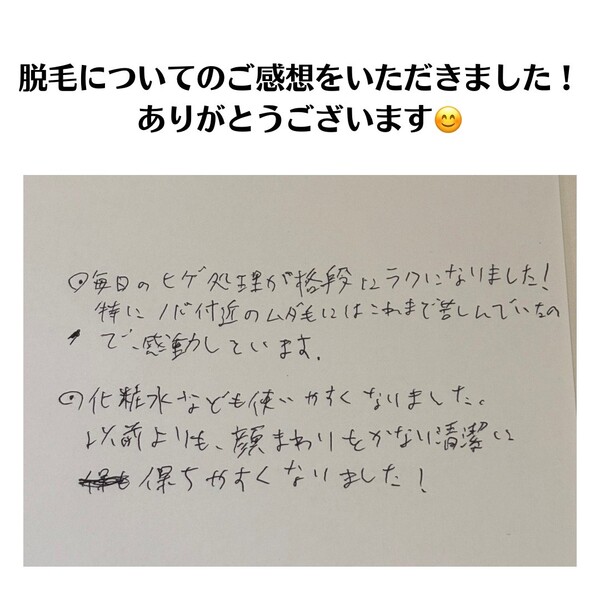 脱毛についてのご感想をいただきました！
ありがとうございます😊
⦿毎日のヒゲ処理が格段にラクになりました！
特にノド付近のムダ毛にはこれまで苦しんでいたの
で、感動しています。
⦿化粧水なども使いやすくなりました。
以前よりも、顔まわりをかなり清潔に
保ちやすくなりました！